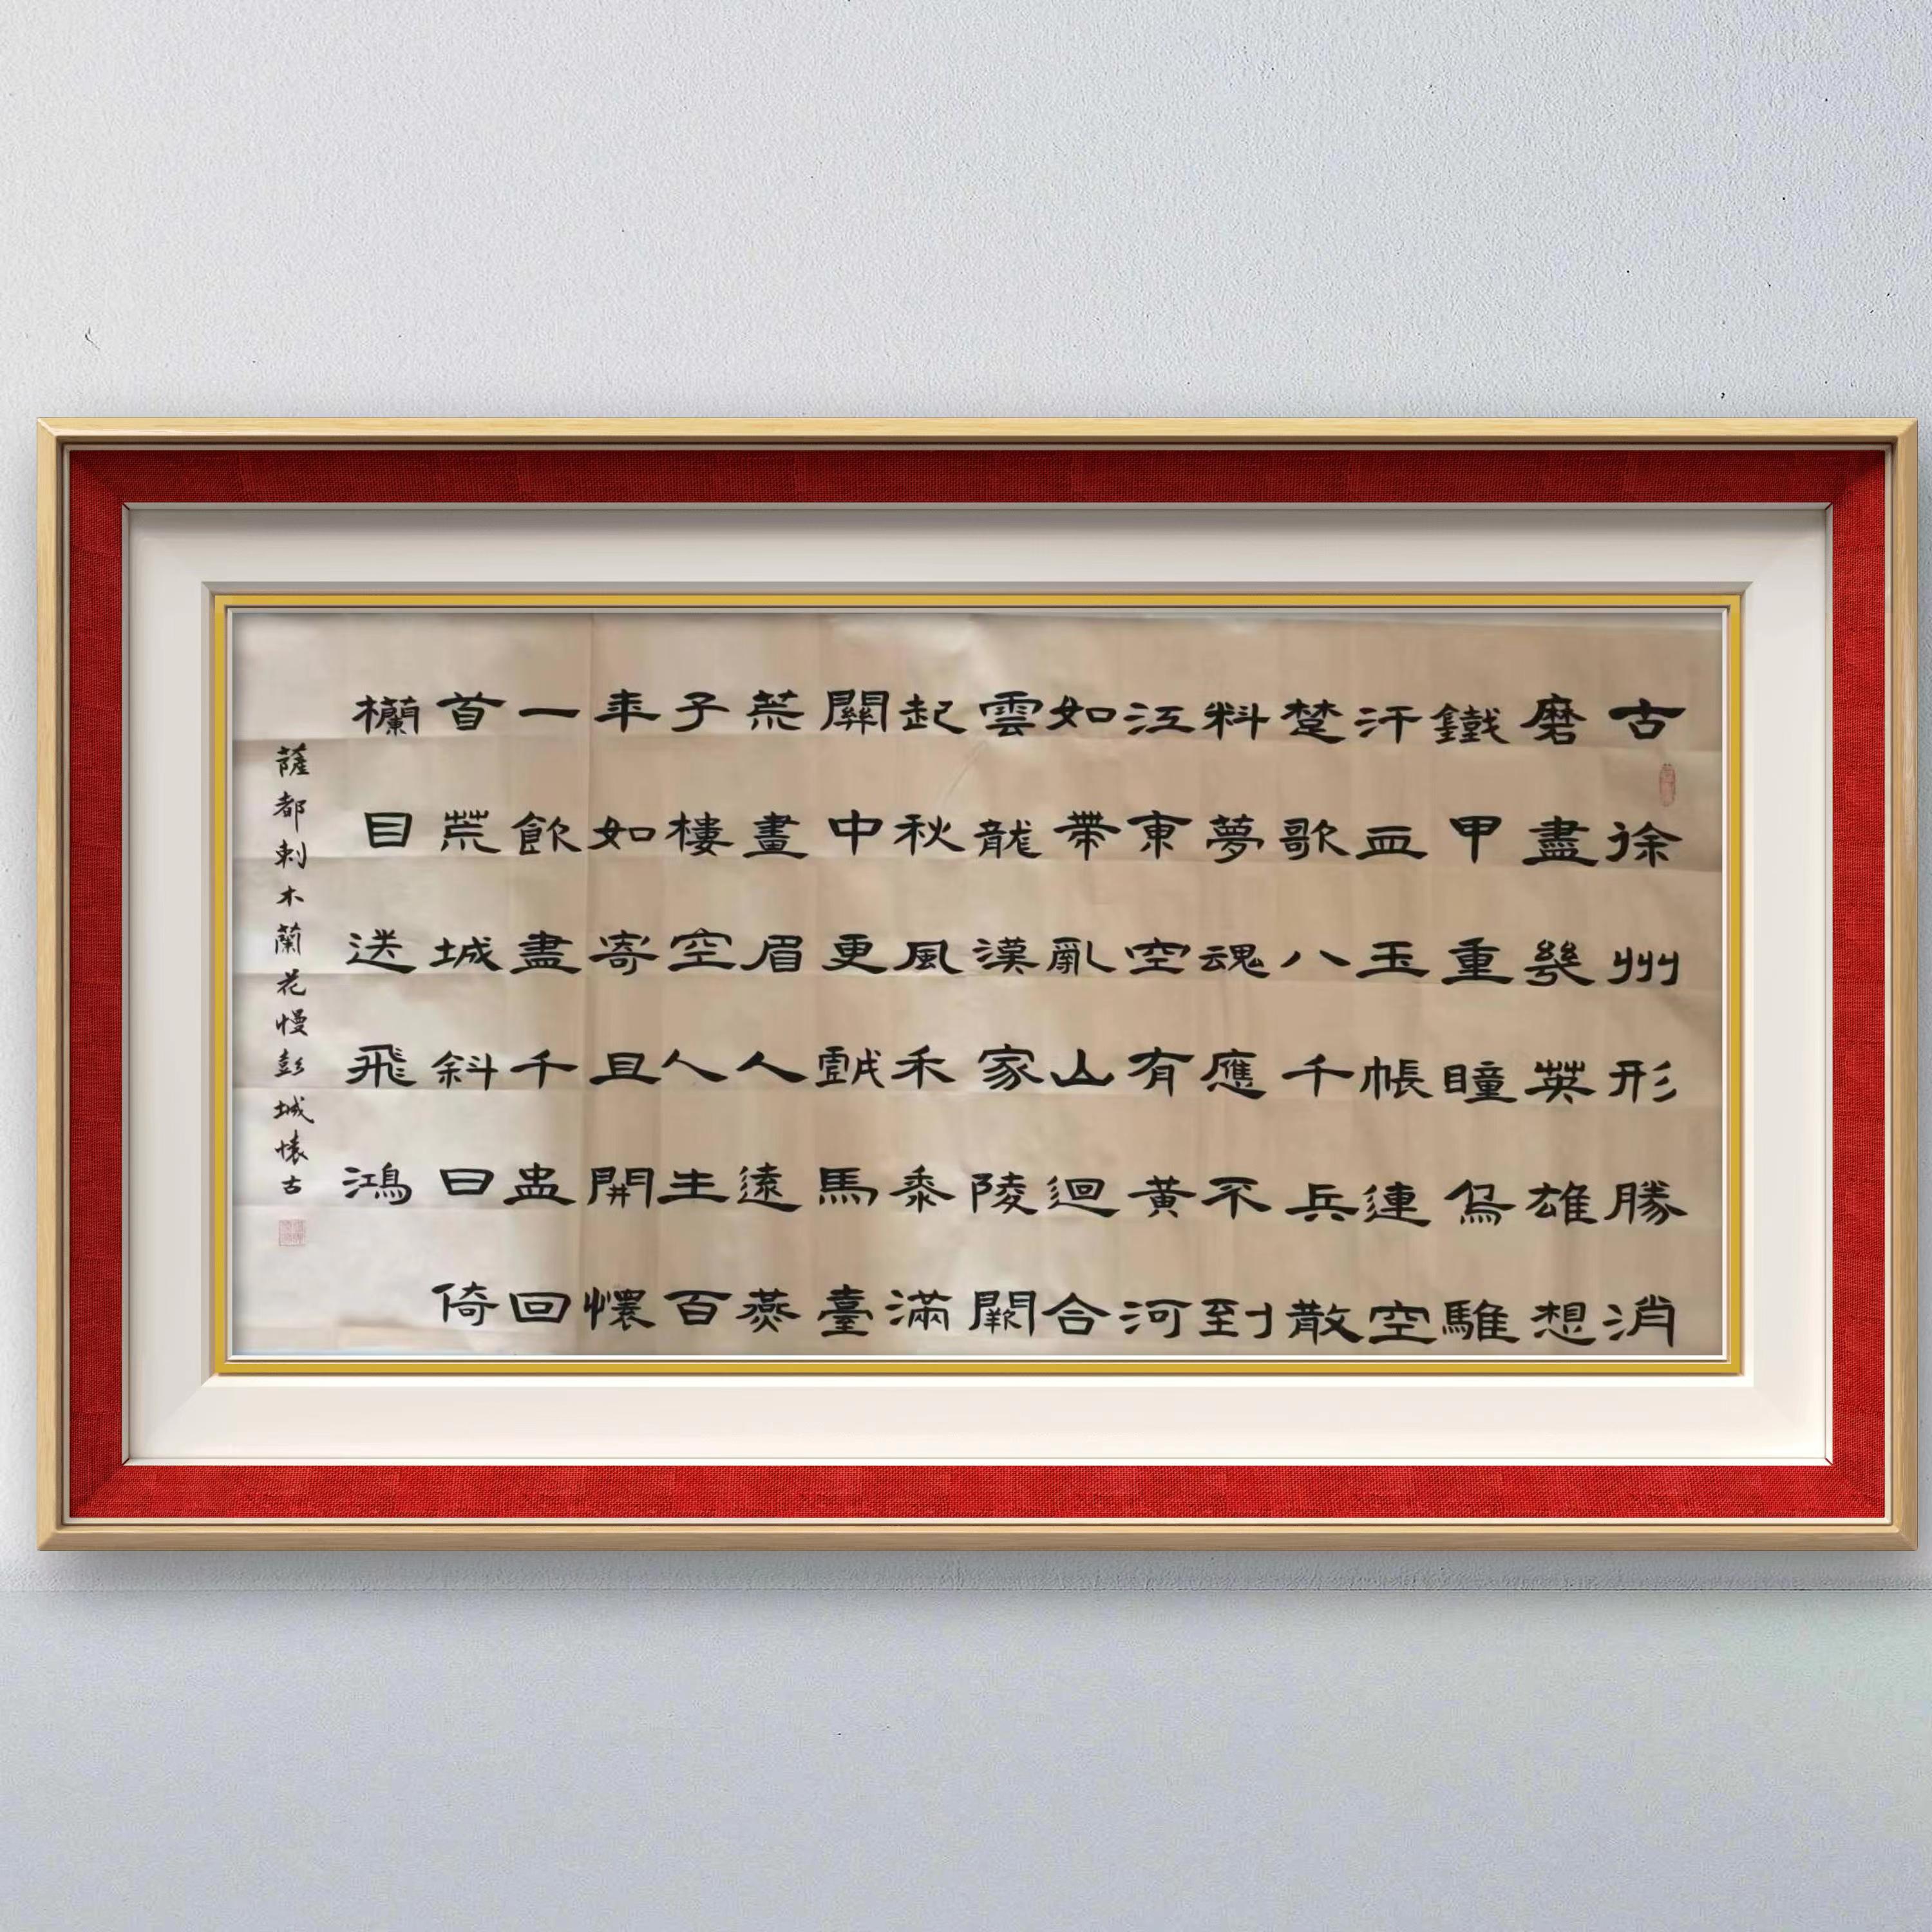 古徐州形勝消
磨盡幾英雄想
鐵甲重瞳烏騅
汗血玉帳連空
楚歌八千兵散
料夢魂應不到
江東空有黃河
如帶亂山迴合
雲龍漢家陵闕
起秋風禾黍滿
關中更戲馬臺
荒畫眉人遠燕
子樓空人生百
年如寄且開懷
一飲盡千盅回
首荒城斜日倚
欗目送飛鴻
薩都剌木蘭花慢彭城懷古